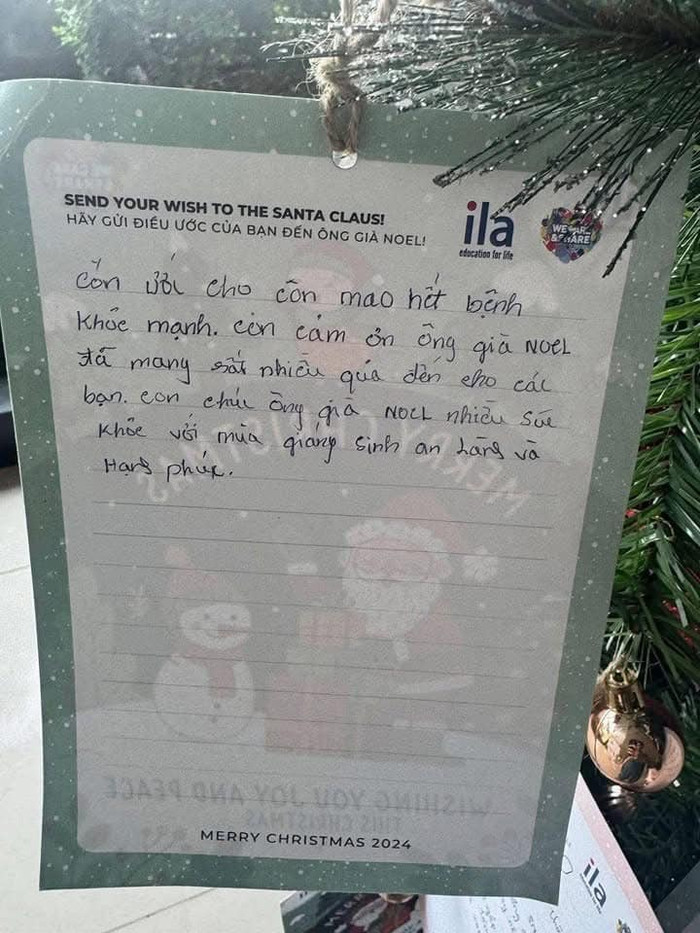 SEND YOUR WISH TO THE SANTA CLAUS!
HÃY GỬI ĐIỀU ƯỚC CỦA BẠN ĐẾN ÔNG GIÀ NOEL!
ila
education for life
WE CARE
& SHARE
con ước cho con mao hết bệnh
Khỏe mạnh. con cảm ơn ông già NOEL
đã mang rất nhiều quà đến cho các
bạn. con chúc ông già NOEL nhiều sức
khỏe với mùa giáng sinh an Lành và
Hạnh phúc.
MERRY CHRISTMAS
WISHING YOU JOY AND PEACE
THIS CHRISTMAS
MERRY CHRISTMAS 2024
ila